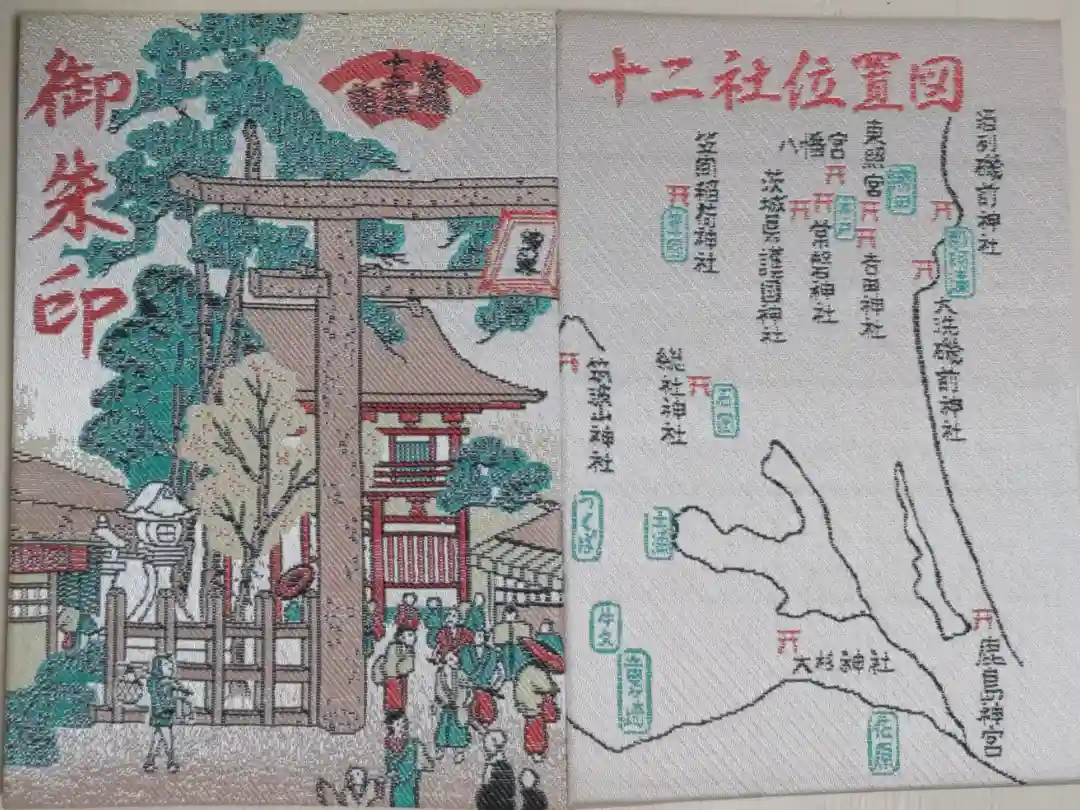 御朱印
十二社位置図
酒列磯前神社
東照宮
八幡宮
笠間稲荷神社
茨城県護国神社
常磐神社
吉田神社
勝田
水戸
笠間
那珂湊
大洗磯前神社
筑波山神社
総社神社
石岡
つくば
土浦
牛久
大杉神社
鹿島神宮
佐原